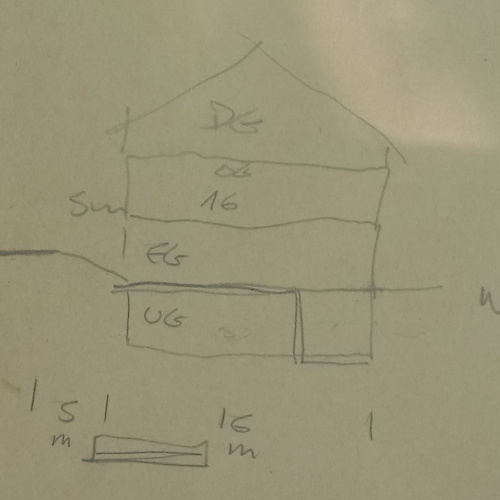 DG
OG
1G
5m
EG
UG
5 m
16 m